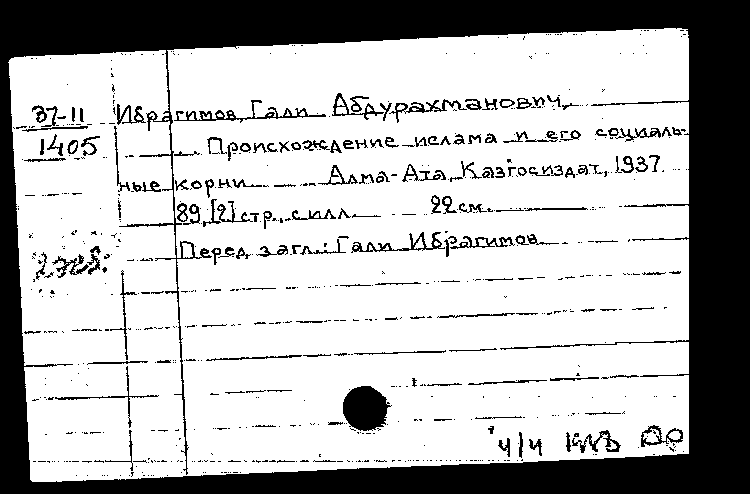 37-11 Ибрагимов, Гали Абдурахманович,
1405 Происхождение ислама и его социаль-
ные корни Алма-Ата, Казгосиздат, 1937.
89, [2] стр., с илл. 22 см.
Перед загл.: Гали Ибрагимов
2 экз.
4/4